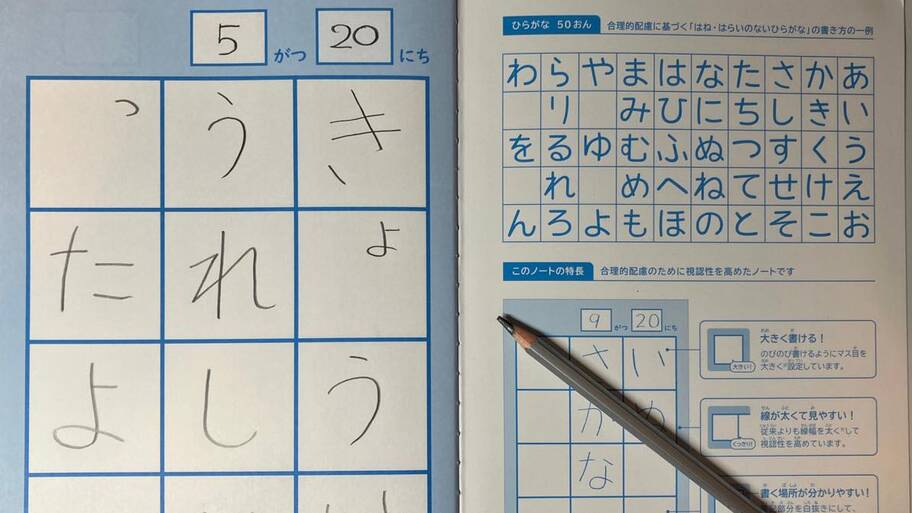 5がつ20にち
きょう
うれし
ったよ
ひらがな 50おん
合理的配慮に基づく「はね・はらいのないひらがな」の書き方の一例
あいうえお
かきくけこ
さしすせそ
たちつてと
なにぬねの
はひふへほ
まみむめも
やゆよ
らりるれろ
わをん
このノートの特長
合理的配慮のために視認性を高めたノートです
9がつ20にち
い
さかな
大きく書ける！
のびのび書けるようにマス目を
大きく設定しています。
大きい！
線が太くて見やすい！
従来よりも線幅を太くして
視認性を高めています。
くっきり！
書く場所が分かりやすい！
部分を白抜きにして、